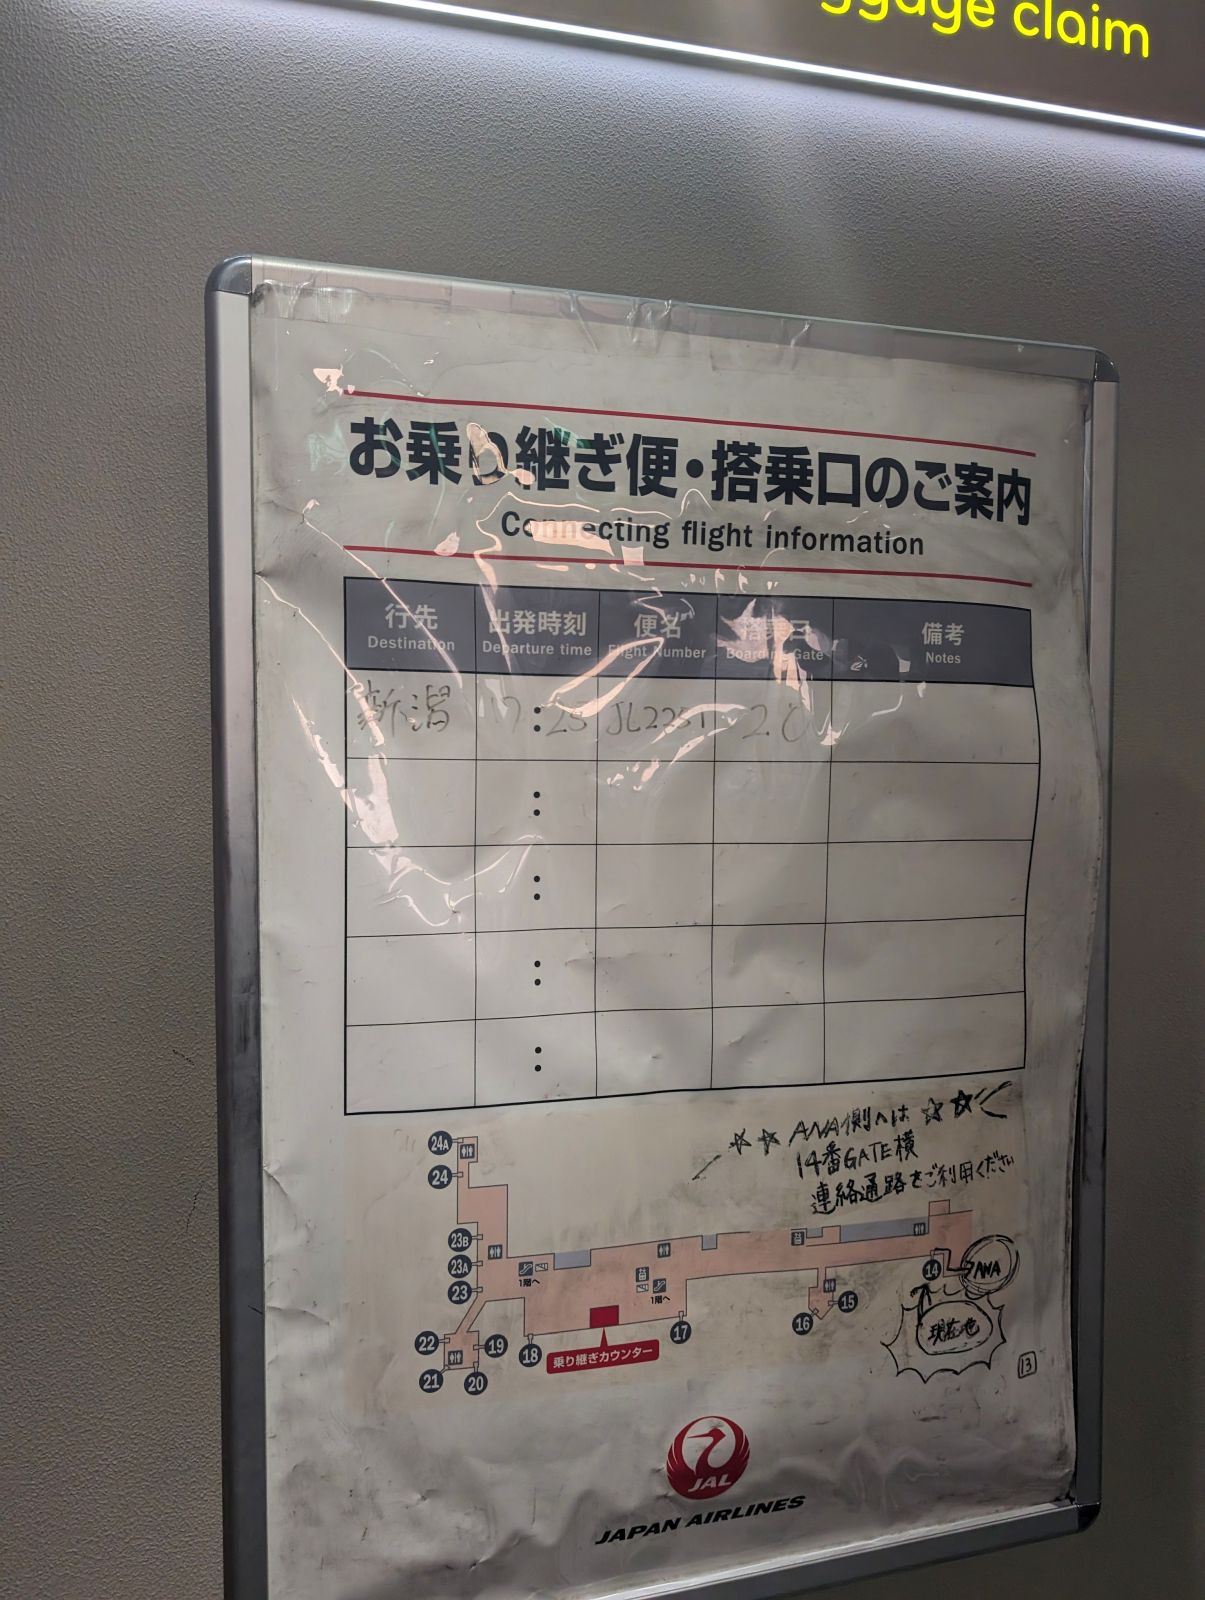 claim
お乗り継ぎ便・搭乗口のご案内
Connecting flight information
行先 出発時刻 便名 搭乗口 備考
Destination Departure time Flight Number Boarding Gate Notes
新潟 17:25 JL2251
:
:
:
:
☆☆ ANA側へは ☆☆
14番GATE横
連絡通路をご利用ください
24A
24
23B
23A
23
22
21
20
19
18
17
16
15
14
ANA
現在地
13
1階へ
1階へ
乗り継ぎカウンター
JAL
JAPAN AIRLINES